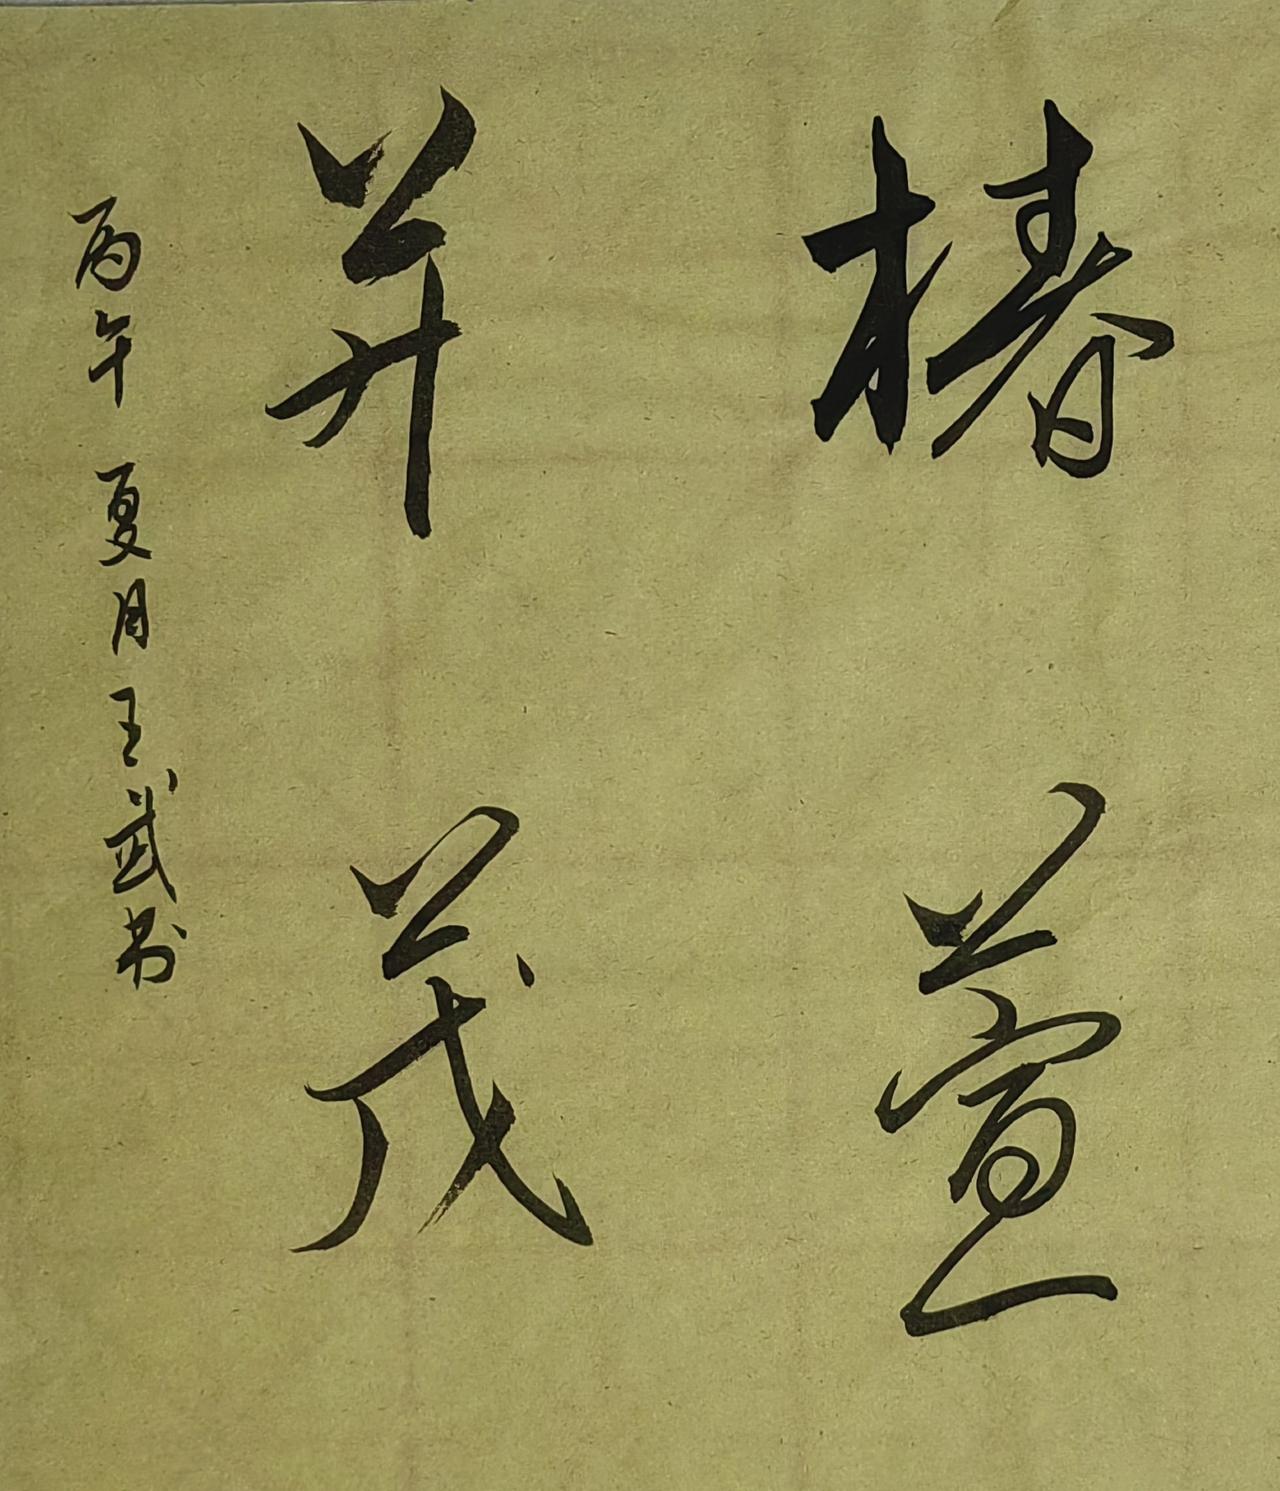 椿萱
并茂
丙午夏月王武书